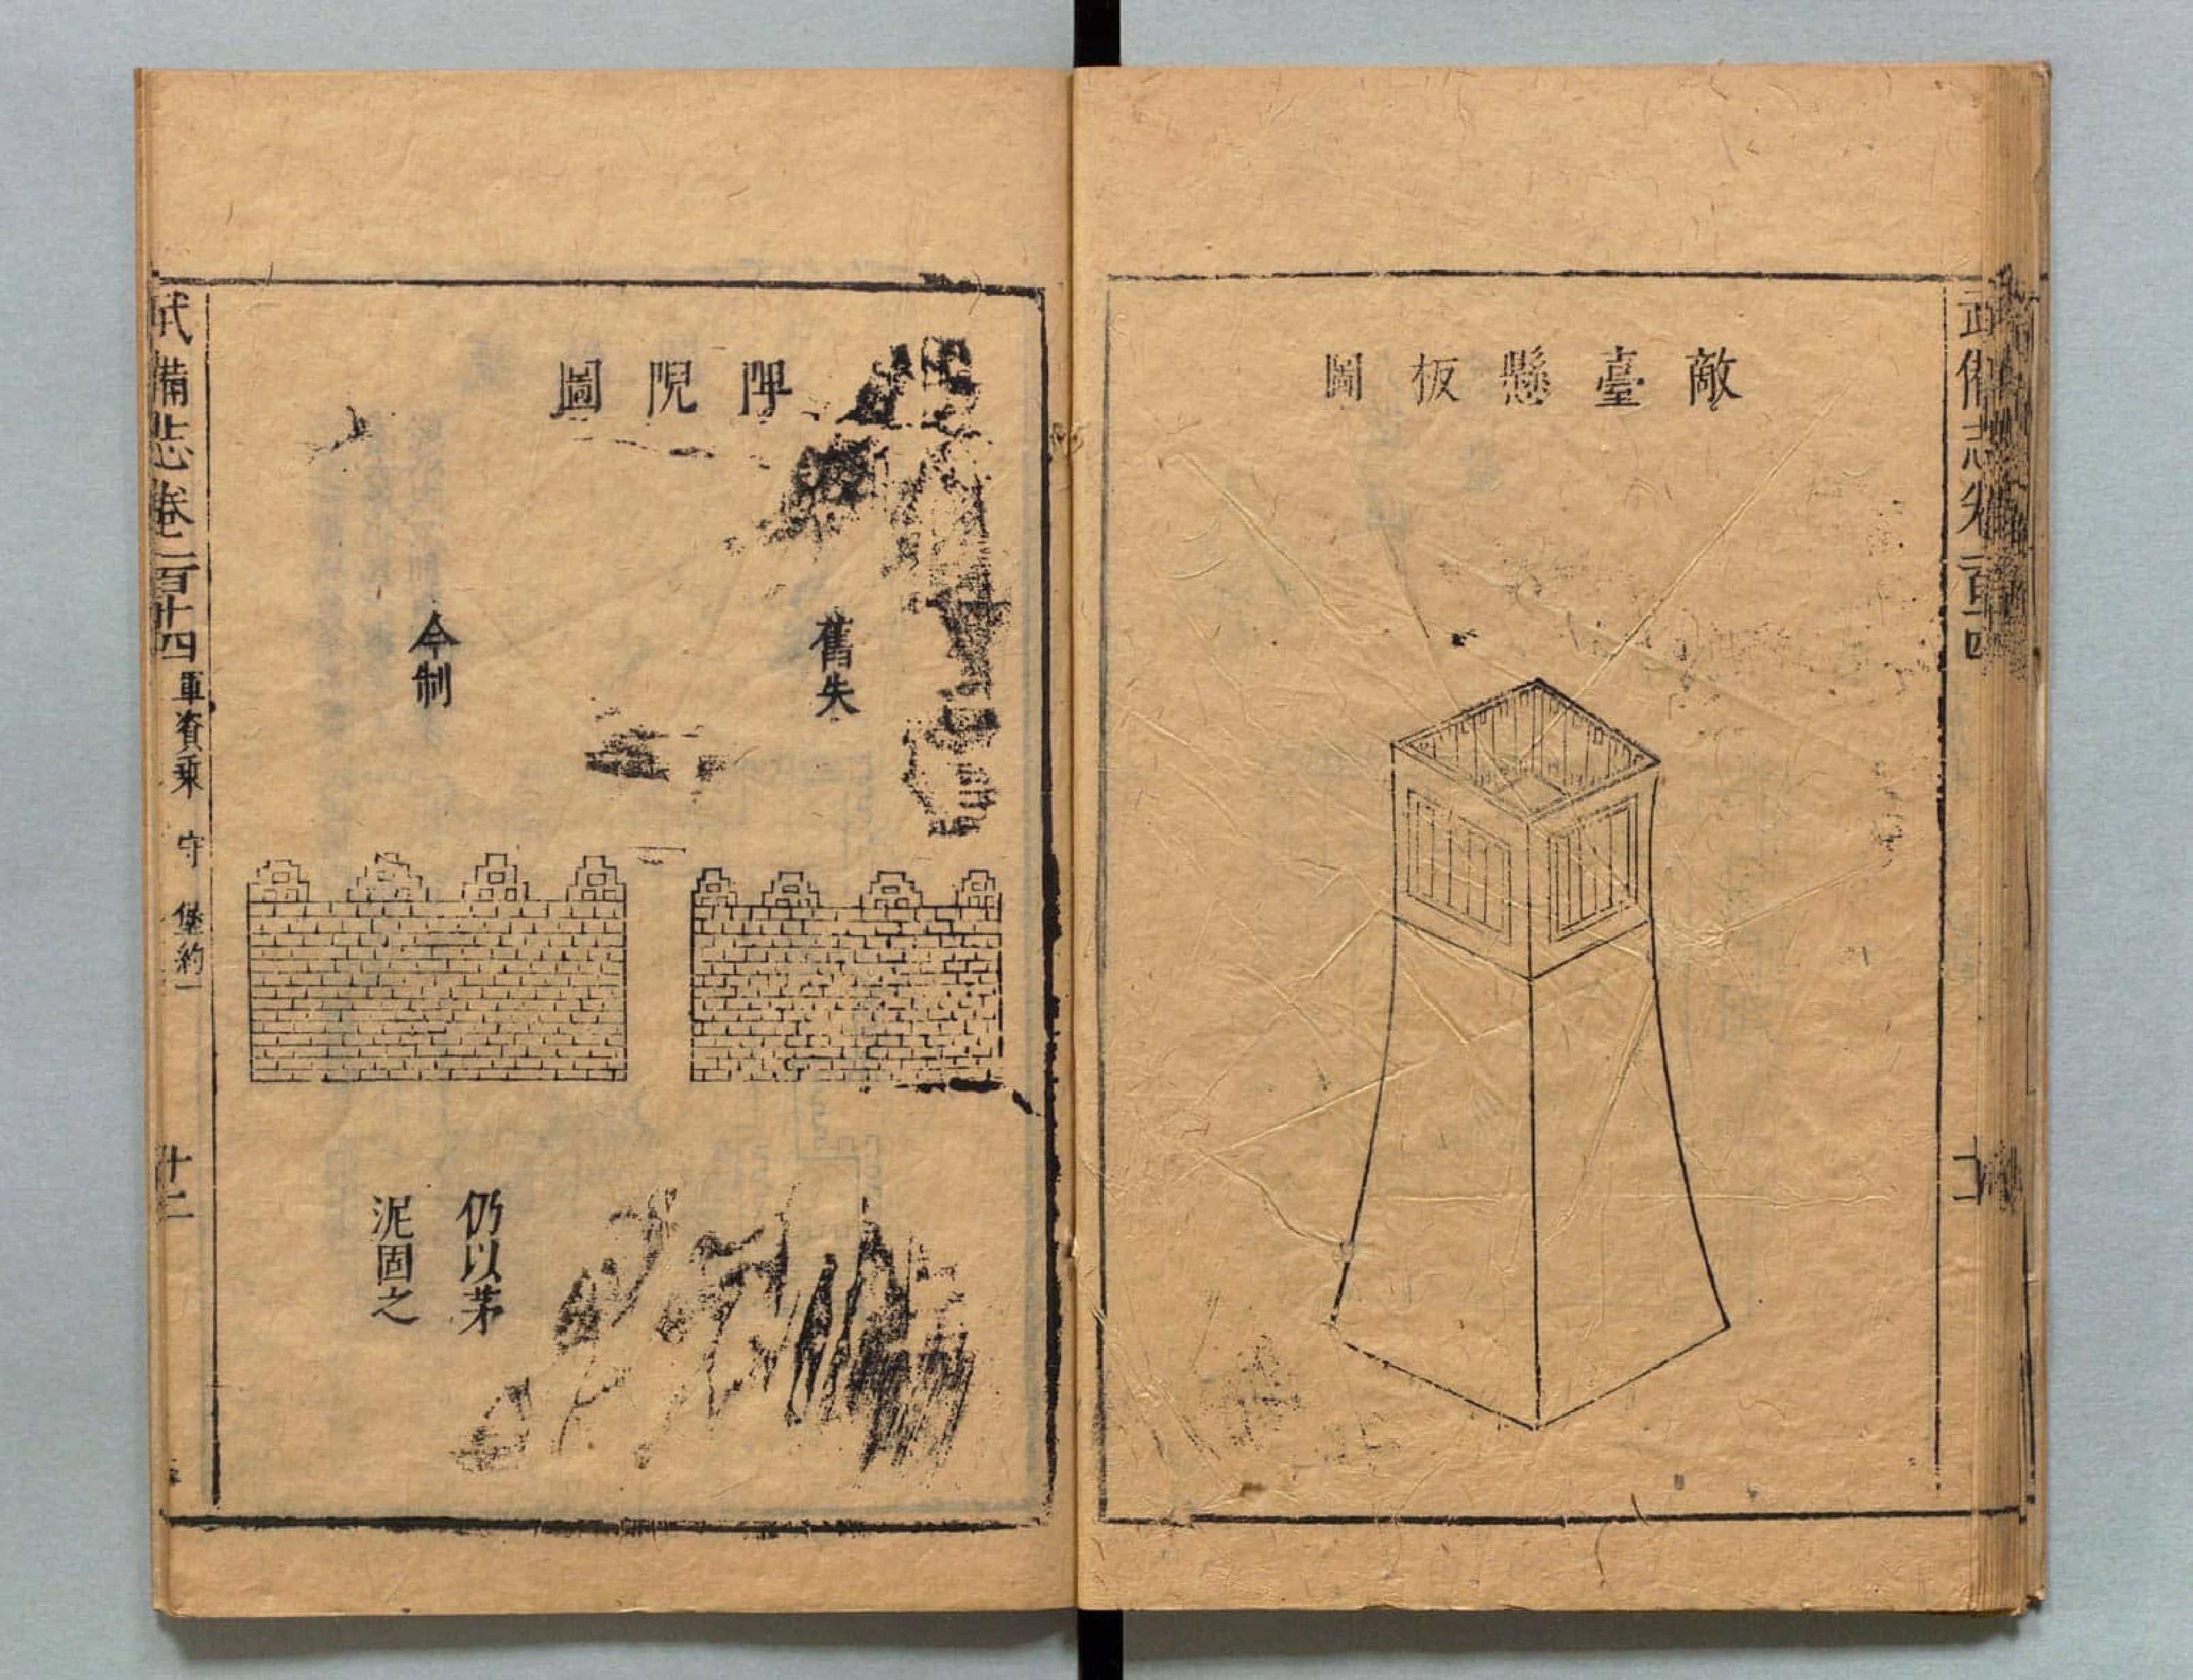 武備志卷
敵臺懸板圖
睥睨圖
舊失
今制
仍以茅
泥固之
武備志卷一百十四 軍資乘 守 堡約一 十二